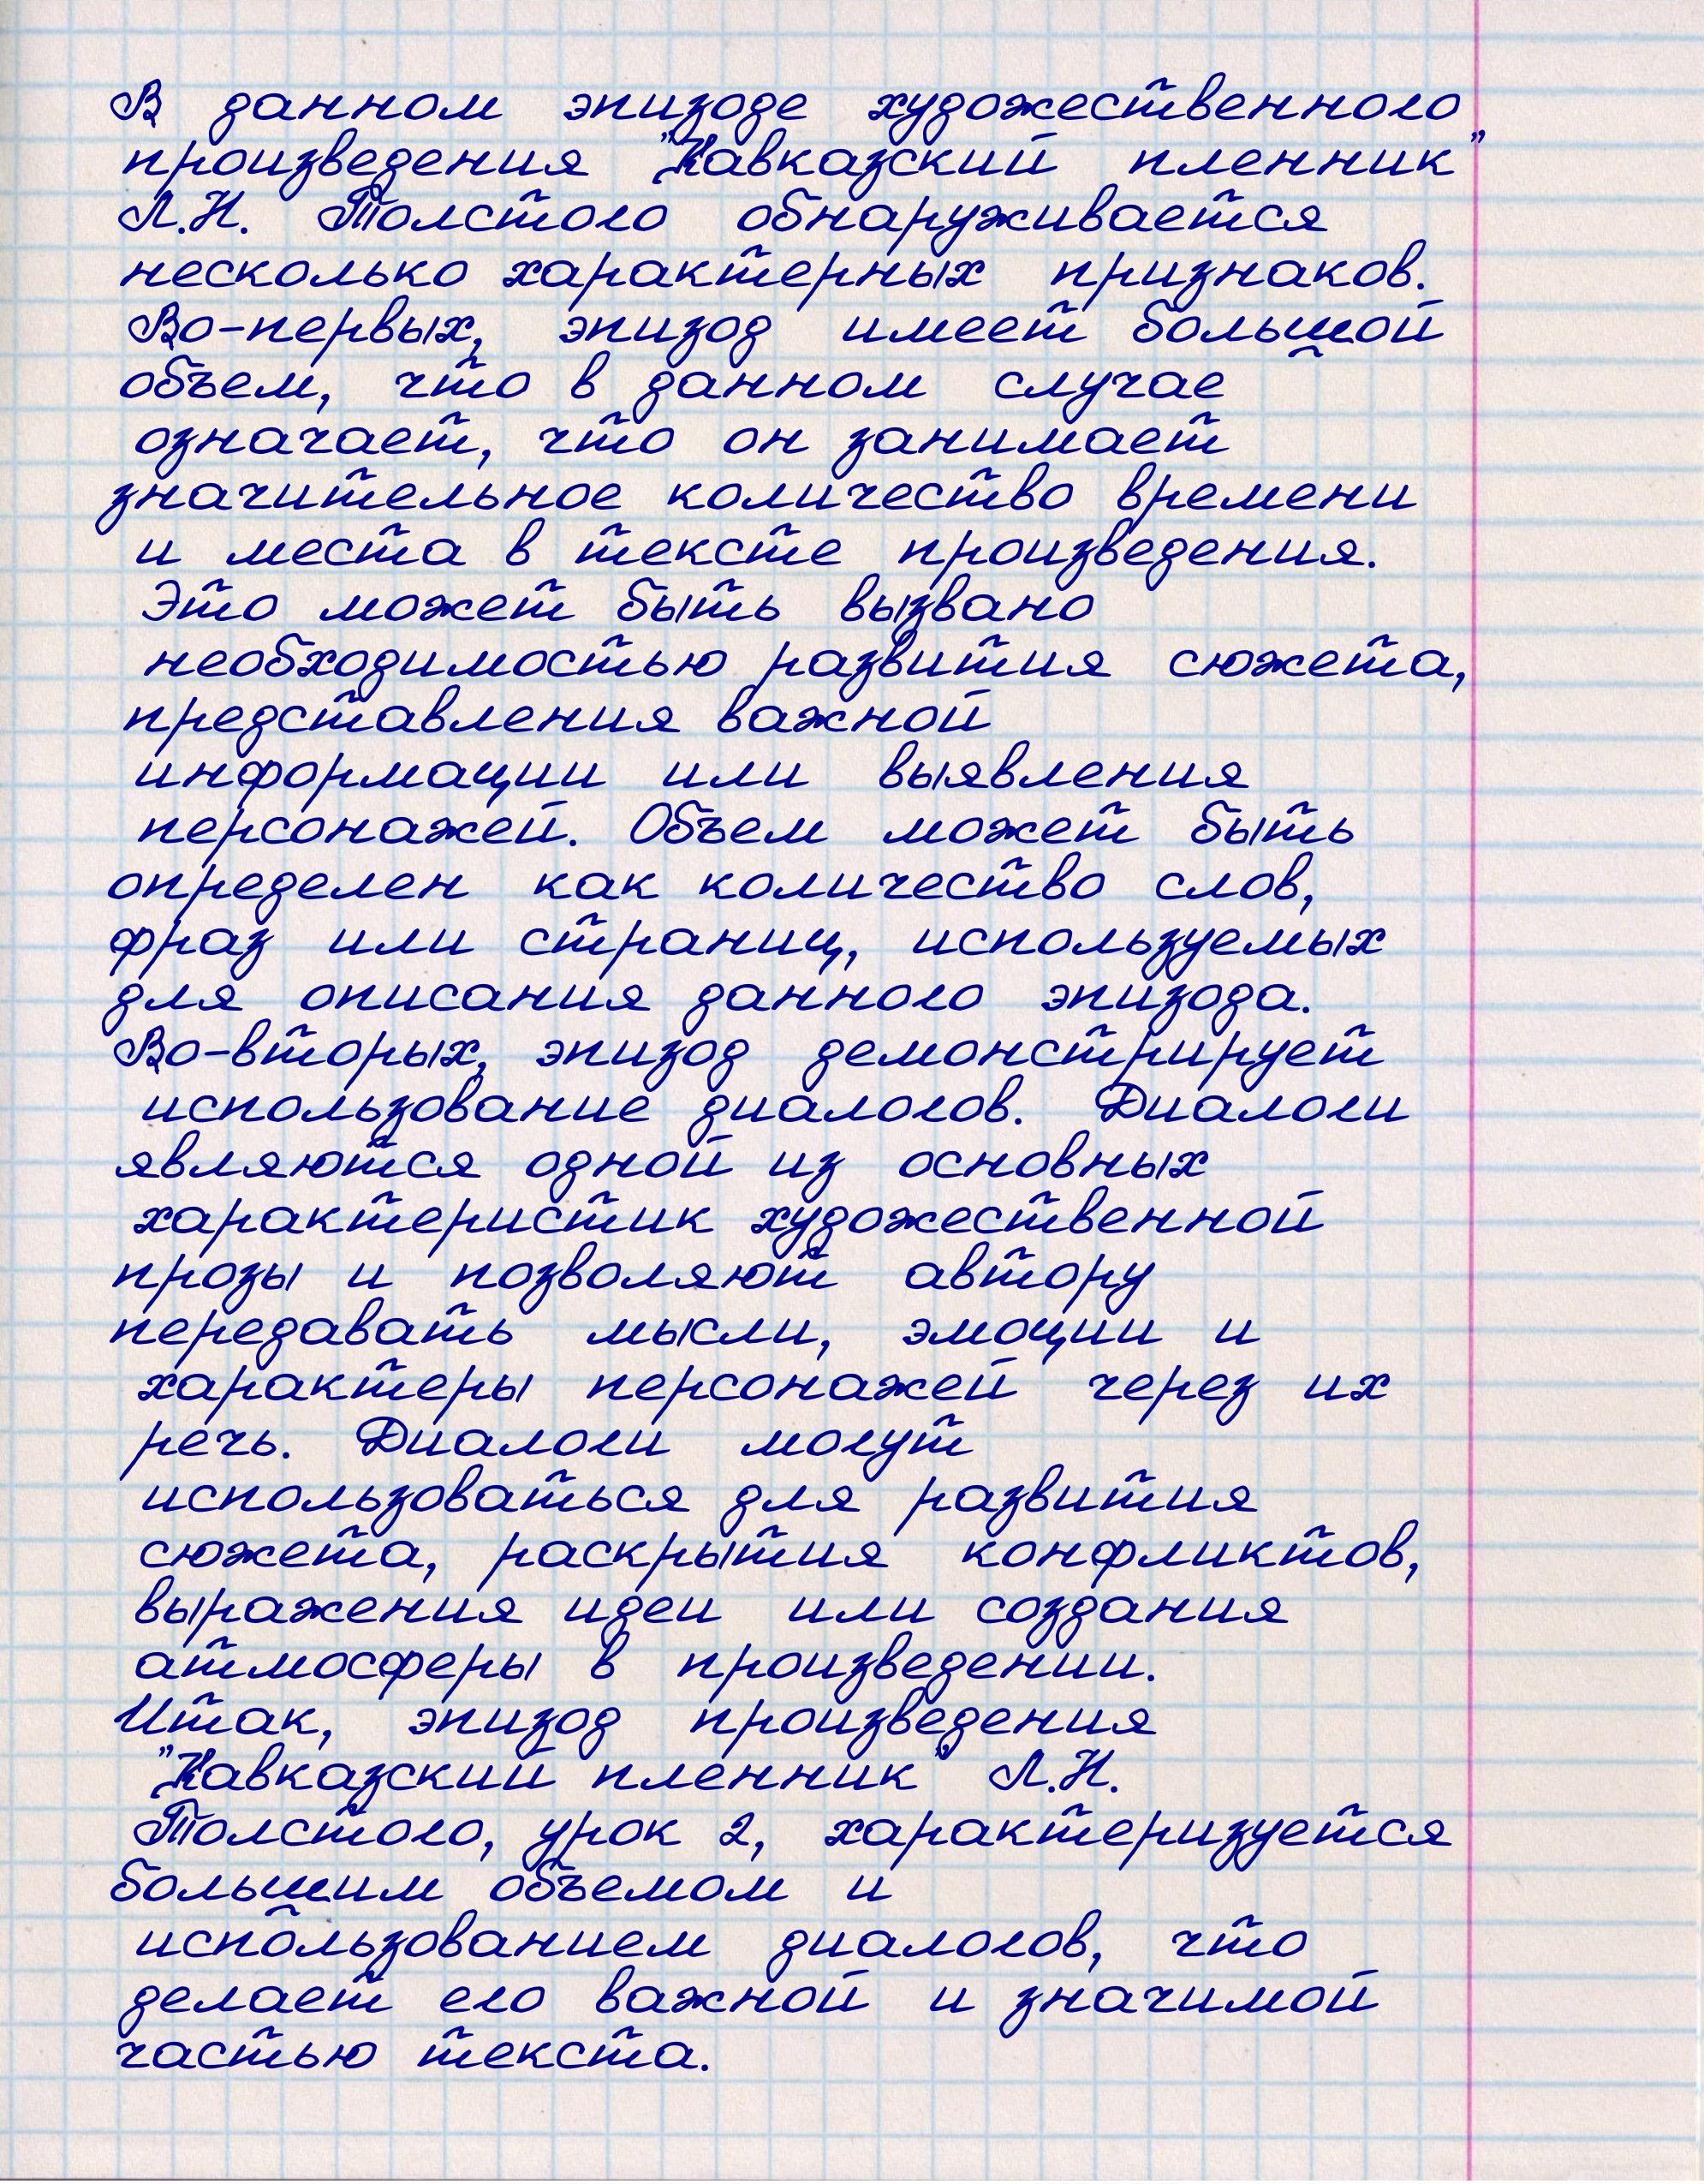 В данном эпизоде художественного
произведения "Кавказский пленник"
Л.Н. Толстого обнаруживается
несколько характерных признаков.
Во-первых, эпизод имеет большой
объем, что в данном случае
означает, что он занимает
значительное количество времени
и места в тексте произведения.
Это может быть вызвано
необходимостью развития сюжета,
представления важной
информации или выявления
персонажей. Объем может быть
определен как количество слов,
фраз или страниц, используемых
для описания данного эпизода.
Во-вторых, эпизод демонстрирует
использование диалогов. Диалоги
являются одной из основных
характеристик художественной
прозы и позволяют автору
передавать мысли, эмоции и
характеры персонажей через их
речь. Диалоги могут
использоваться для развития
сюжета, раскрытия конфликтов,
выражения идеи или создания
атмосферы в произведении.
Итак, эпизод произведения
"Кавказский пленник" Л.Н.
Толстого, урок 2, характеризуется
большим объемом и
использованием диалогов, что
делает его важной и значимой
частью текста.